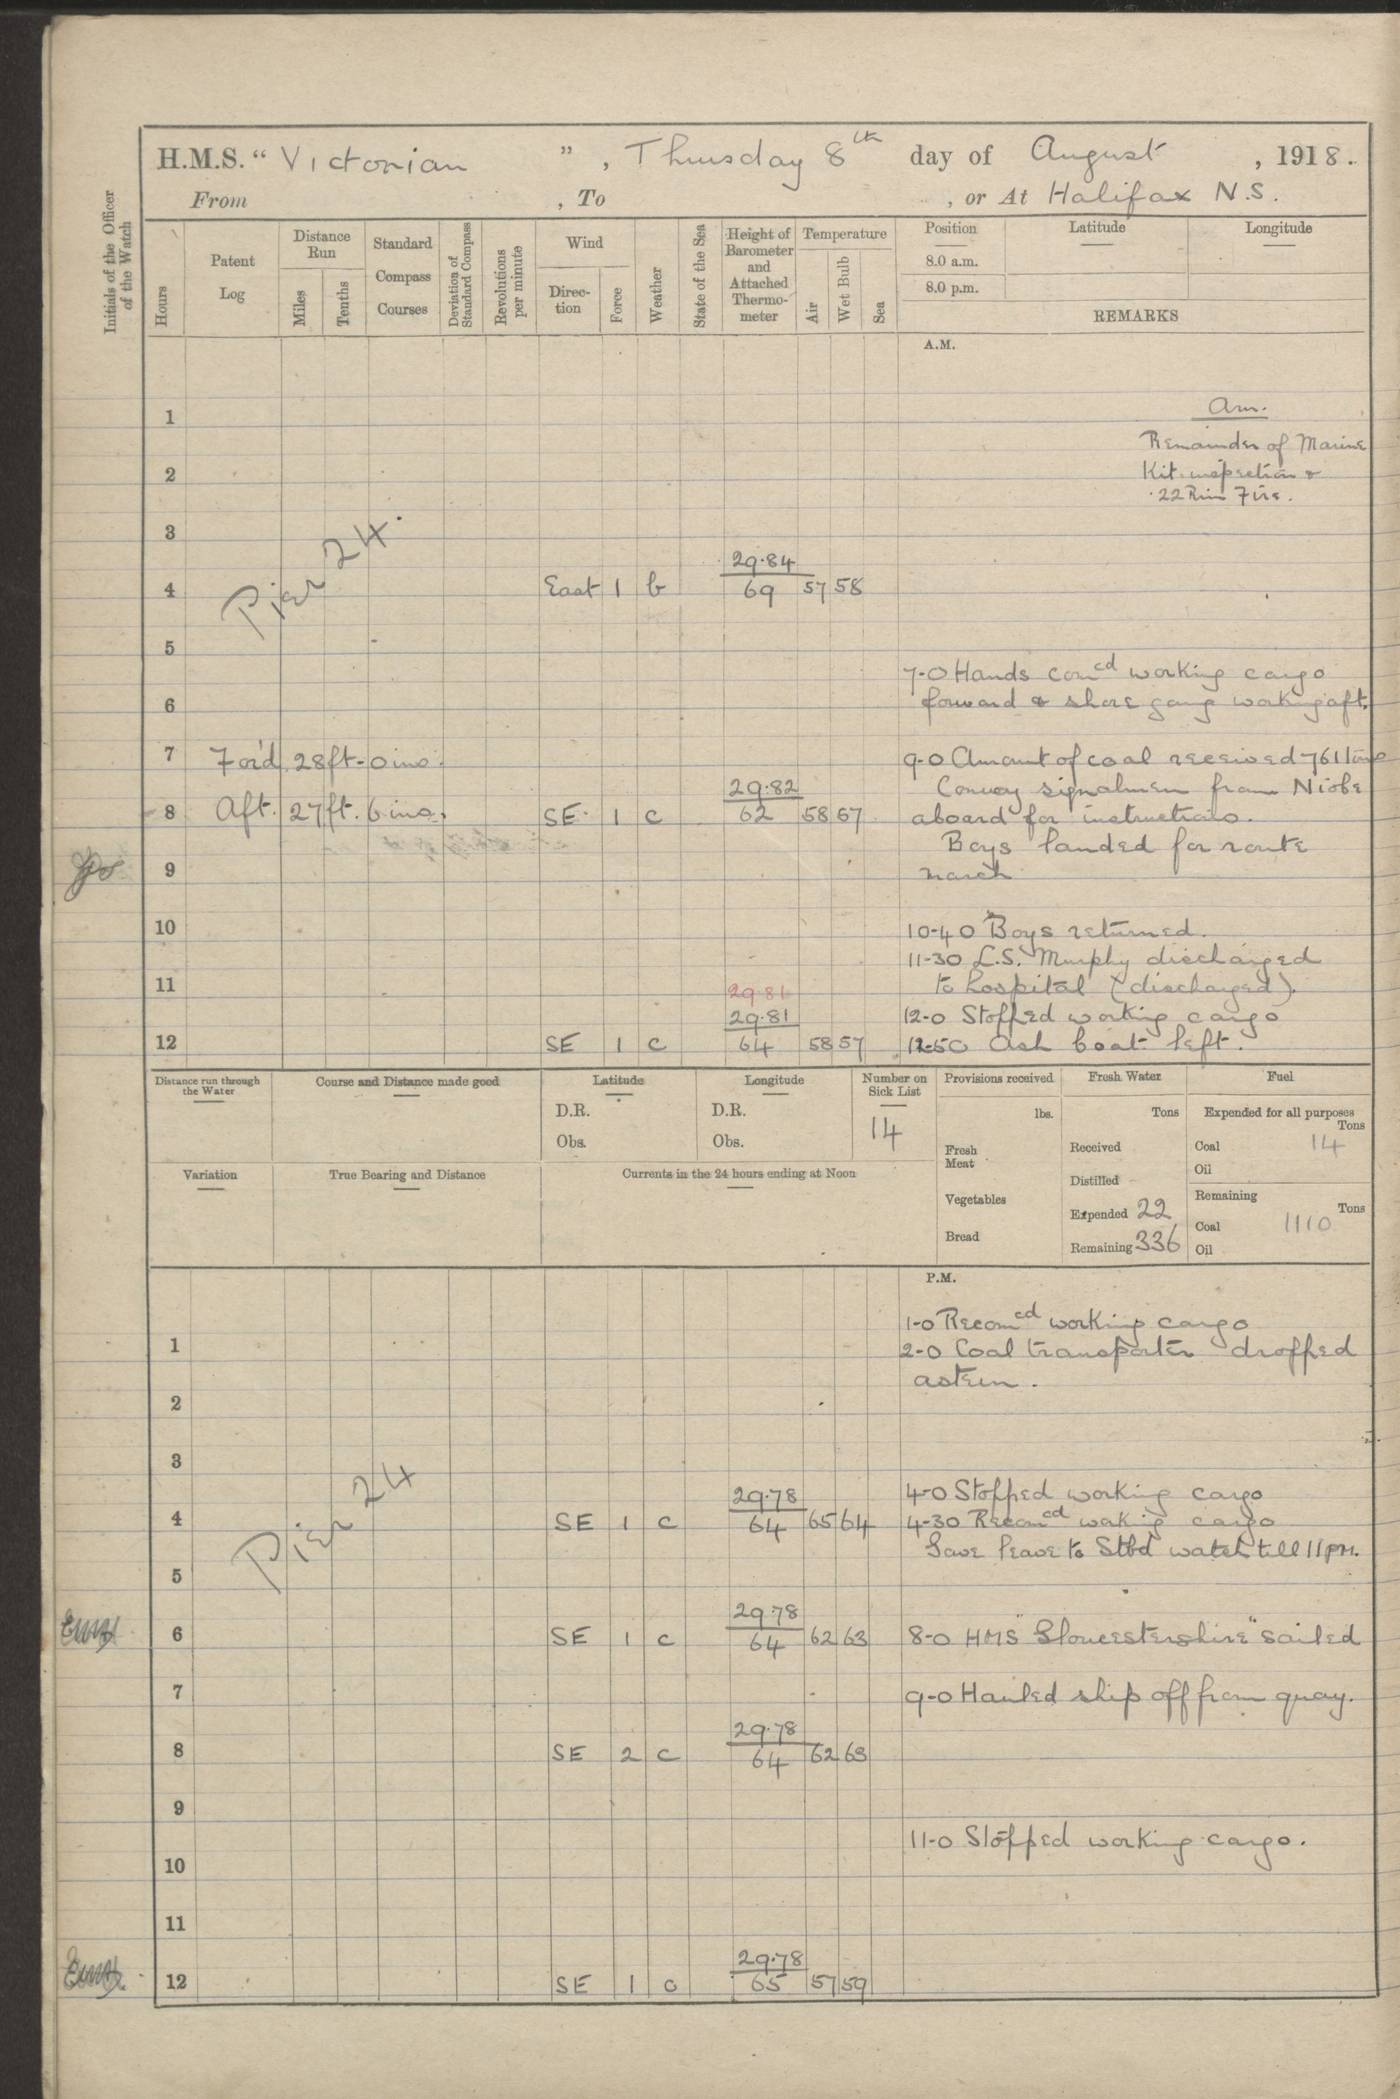 H.M.S. “ Victorian ” , Thursday 8th day of August , 1918.
From , To , or At Halifax N.S.
Initials of the Officer of the Watch
Hours
Patent Log
Distance Run
Miles
Tenths
Standard Compass Courses
Deviation of Standard Compass
Revolutions per minute
Wind
Direction
Force
Weather
State of the Sea
Height of Barometer and Attached Thermometer
Temperature
Air
Wet Bulb
Sea
Position
8.0 a.m.
8.0 p.m.
Latitude
Longitude
REMARKS
A.M.
1
Am.
Remainder of Marine
2
Kit inspection &
.22 Rim Fire.
3
Pier 24.
29.84
4 East 1 b 69 57 58
5
7-0 Hands comcd working cargo
6
forward & shore gang working aft.
7 For'd 28ft-0ins.
9-0 Amount of coal received 761 tons
29.82
Convoy signalmen from Niobe
8 Aft. 27ft. 6ins. SE 1 c 62 58 57
aboard for instructions.
Boys landed for route
9
march
10
10-40 Boys returned.
11-30 L.S. Murphy discharged
11
to hospital (discharged).
29.81
29.81
12-0 Stopped working cargo
12 SE 1 c 64 58 57
12-50 Ash boat left.
Distance run through the Water
Course and Distance made good
Latitude
D.R.
Obs.
Longitude
D.R.
Obs.
Number on Sick List
14
Provisions received
lbs.
Fresh Meat
Vegetables
Bread
Fresh Water
Tons
Received
Distilled
Expended 22
Remaining 336
Fuel
Expended for all purposes
Tons
Coal 14
Oil
Remaining
Tons
Coal 1110
Oil
Variation
True Bearing and Distance
Currents in the 24 hours ending at Noon
P.M.
1-0 Recomcd working cargo
1
2-0 Coal transporter dropped
astern.
2
3
Pier 24
29.78
4-0 Stopped working cargo
4 SE 1 c 64 65 64
4-30 Recomcd working cargo
Gave leave to Stbd watch till 11 pm.
5
29.78
6 SE 1 c 64 62 63
8-0 HMS "Gloucestershire" sailed
7
9-0 Hauled ship off from quay.
29.78
8 SE 2 c 64 62 63
9
11-0 Stopped working cargo.
10
11
29.78
12 SE 1 c 65 57 59